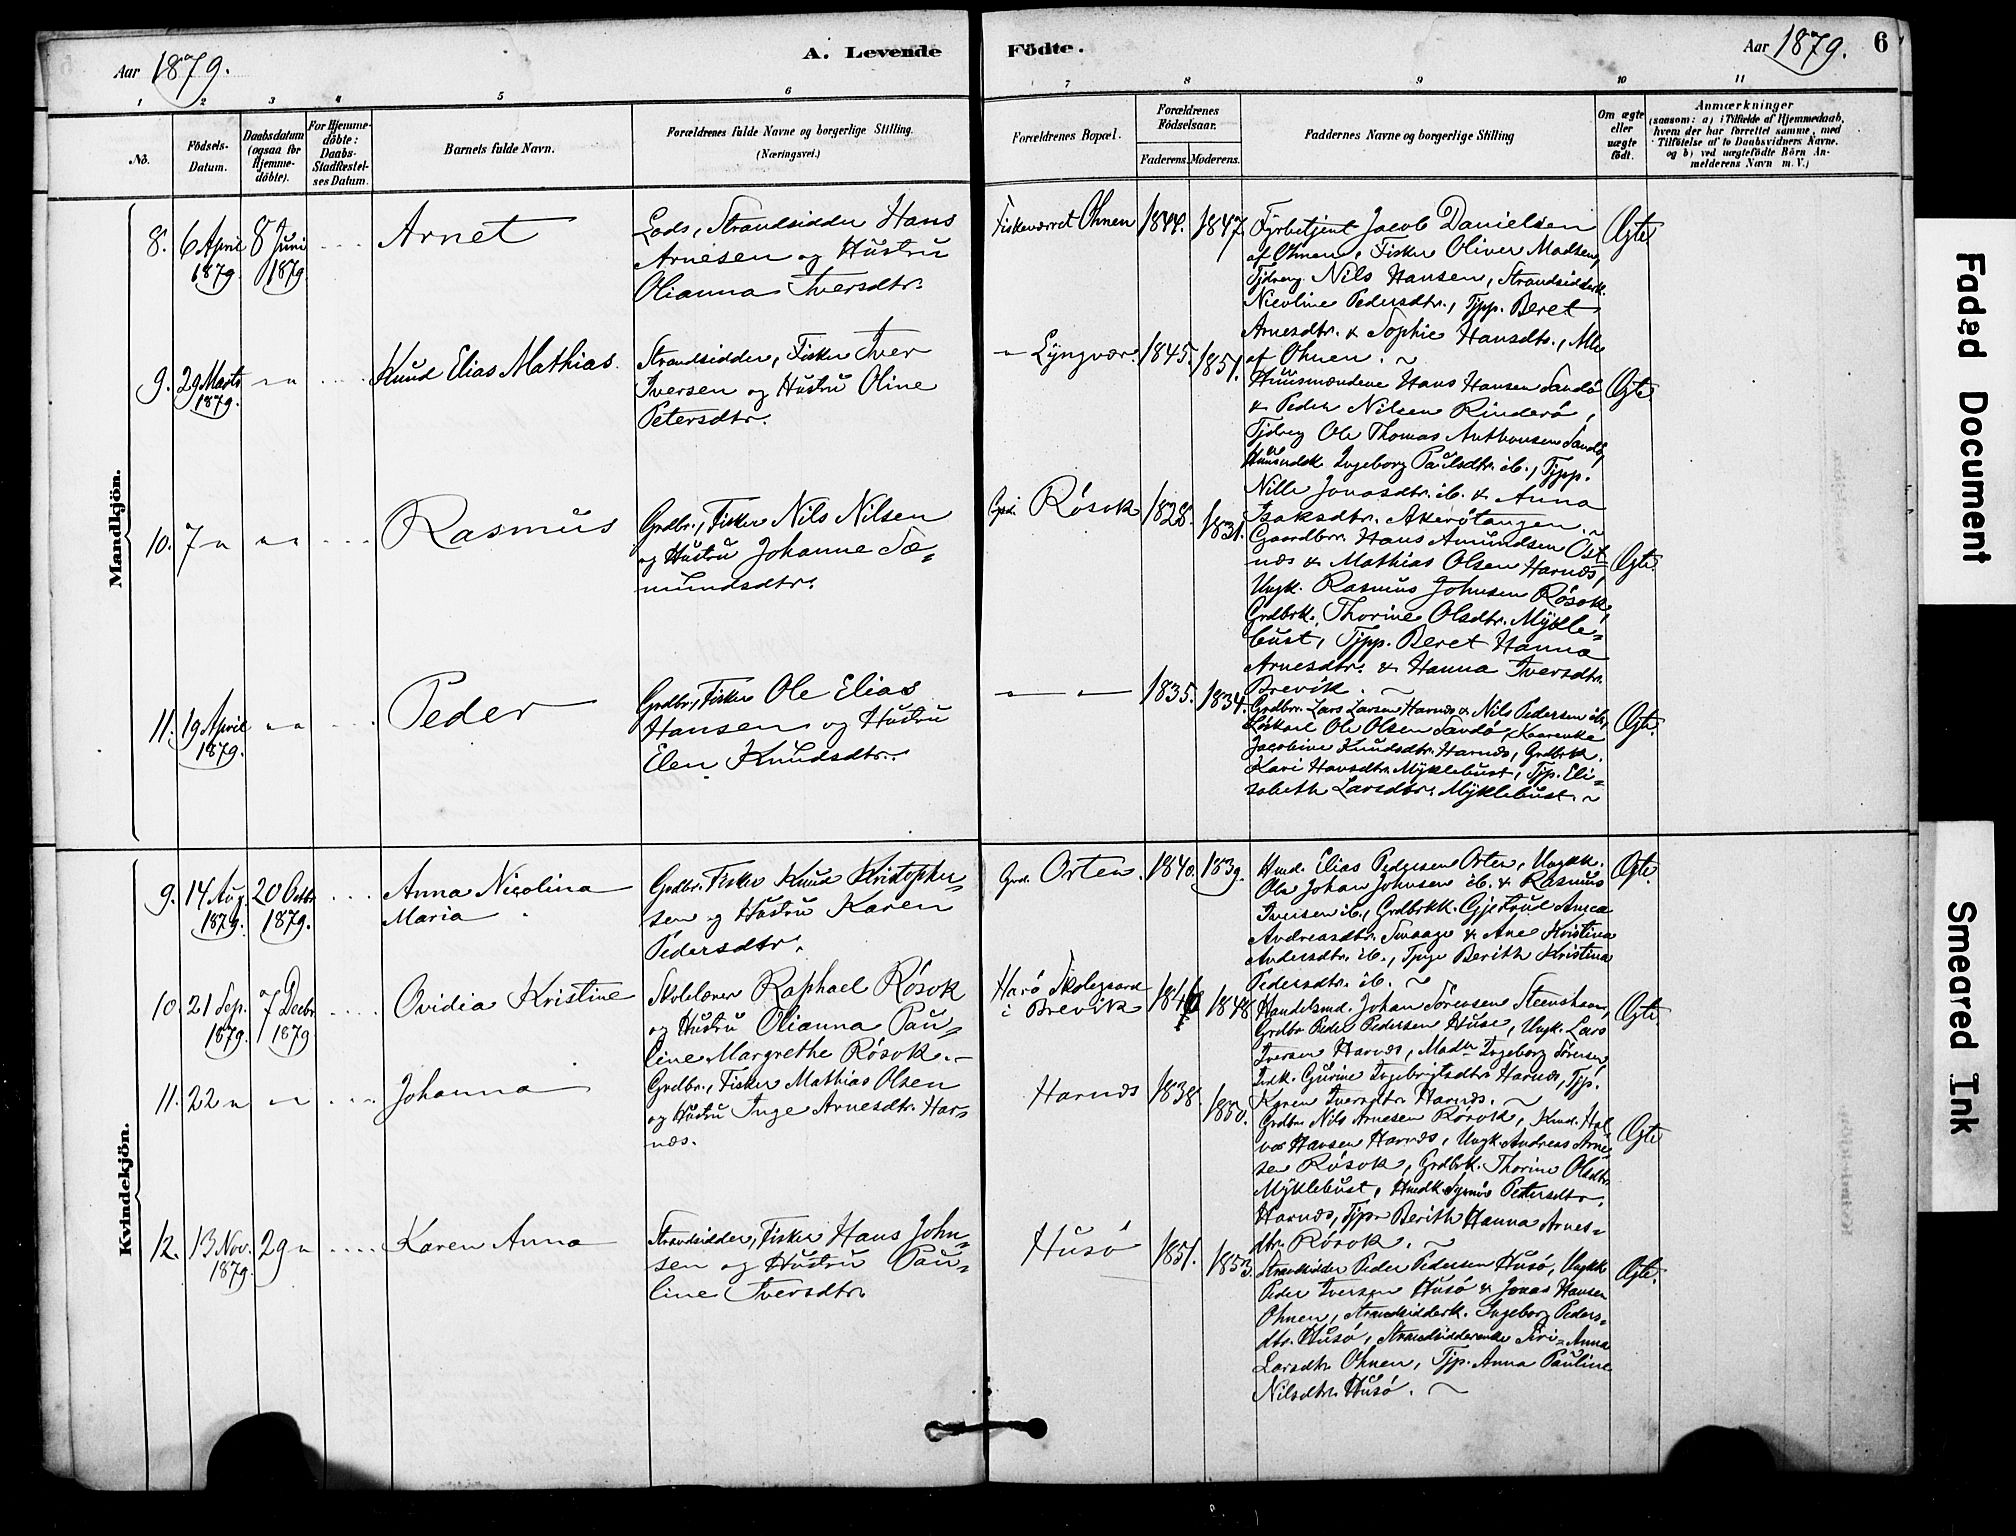 Aar 1879.
A. Levende
Födte.
Aar 1879. 6
1 2 3 4 5 6 7 8 9 10 11
No.
Födsels-Datum.
Daabsdatum (ogsaa for Hjemme-döbte).
For Hjemme-döbte: Daabs-Stadfæstel-ses Datum.
Barnets fulde Navn.
Forældrenes fulde Navne og borgerlige Stilling.
(Næringsvei.)
Forældrenes Bopæl.
Forældrenes Födselsaar.
Faderens. Moderens.
Faddernes Navne og borgerlige Stilling
Om ægte eller uægte födt.
Anmærkninger
(saasom: a) i Tilfælde af Hjemmedaab,
hvem der har forrettet samme, med
Tilföielse af to Daabsvidners Navne,
og b) ved uægtefödte Börn An-
melderens Navn m. V.)
Mandkjön.
8. 6 April 1879. 8 Juni 1879
Arnet
Lods, Strandsidder Hans
Arnesen og Hustru
Olianna Iversdtr.
Fiskeværret Ohnen 1844. 1847
Fyrbetjent Jacob Danielsen
af Ohnen, Fisker Oliver Madsen,
Tjdreng Nils Hansen, Strandsidderk.
Nicoline Pedersdtr., Tjpp. Beret
Arnesdtr. & Sophie Hansdtr., Alle
af Ohnen. ~
Ægte
9. 29 Marts 1879. " "
Knud Elias Mathias.
Strandsidder, Fisker Iver
Iversen og Hustru Oline
Petersdtr.
" Lyngvær. 1845. 1851.
Huusmændene Hans Hansen Sandö
& Peder Nilsen Rinderö,
Tjdreng Ole Thomas Anthonsen Sandö,
Ingeborg Paulsdtr. ib., Tjpp.
Nille Jonasdtr. ib. & Anna
Isaksdtr. Akerötangen. ~
Ægte.
10. 7 " " "
Rasmus
Grdbr., Fisker Nils Nilsen
og Hustru Johanne Sæ-
mundsdtr.
Grd. Rösok 1828. 1831.
Gaardbrr. Hans Amundsen Öst-
næs & Mathias Olsen Harnæs,
Ungk. Rasmus Johnsen Rösok,
Grdbrk. Thorine Olsdtr. Mykle-
bust, Tjpp. Beret Hanna
Arnesdtr. & Hanna Iversdtr.
Brevik. ~
Ægte.
11. 19 April 1879. " "
Peder
Grdbr, Fisker Ole Elias
Hansen og Hustru
Elen Knudsdtr.
" " 1835. 1834.
Grdbrr. Lars Larsen Harnæs & Nils Pedersen ib.,
Ole Olsen Sandö,
Jacobine Knudsdtr. Harnæs, Grdbrk.
Kari Hansdtr. Myklebust, Tjp. Eli-
sabeth Larsdtr. Myklebust. ~
Ægte.
Kvindekjön.
9. 14 Aug. 1879. 20 Octbr 1879.
Anna Nicolina
Maria
Grdbr. Fisker Knud Kristopher-
sen og Hustru Karen
Pedersdtr.
Grd. Orten. 1840. 1839.
Hmd. Elias Pedersen Orten, Ungkk.
Ole Johan Johnsen ib. & Rasmus
Iversen ib., Grdbrkk. Gjertrud Anna
Andreasdtr. Smaage & Ane Kristina
Andersdtr. ib., Tpige Berith Kristina
Pedersdtr. ib. ~
Ægte.
10. 21 Sep. 1879. 7 Decbr 1879
Ovidia Kristine
Skolelærer Raphael Rösok
og Hustru Olianna Pau-
line Margrethe Rösok.-
Harö Skolegaard
i Brevik 1846 1848
Handelsmd. Johan Sörensen Steenshavn,
Grdbr Peder Pedersen Huse, Ungk. Lars
Iversen Harnæs, Madm Ingeborg Sörensen,
Gurine Ingebrigtsdtr. Harnæs, Tjp.
Karen Iversdtr. Harnæs. ~
Ægte.
11. 22 " " "
Johanna
Grdbr., Fisker Mathias Olsen
og Hustru Inge Arnesdtr. Har-
næs.
Harnæs 1838. 1850.
Grdbr Nils Arnesen Rörvik, Hal-
vor Hansen Harnæs, Ungk. Andreas Arne-
sen Rösok, Grdbrk. Thorine Olsdtr.
Myklebust, Hmdk. Pedersdtr.
Harnæs, Tjp. Berith Hanna Arnes-
dtr. Rösok. ~
Ægte
12. 13 Nov. 1879. 29 "
Karen Anna
Strandsidder, Fisker Hans John-
sen og Hustru Pau-
line Iversdtr.
Husö 1851. 1853.
Strandsidder Peder Pedersen Husö, Ungkk
Peder Iversen Husö & Jonas Hansen
Ohnen, Strandsidderk. Ingeborg Peders-
dtr. Husö, Siri-Anna
Larsdtr. Ohnen, Tjp. Anna Pauline
Nilsdtr. Husö. ~
Ægte.
Faded Document
Smeared Ink